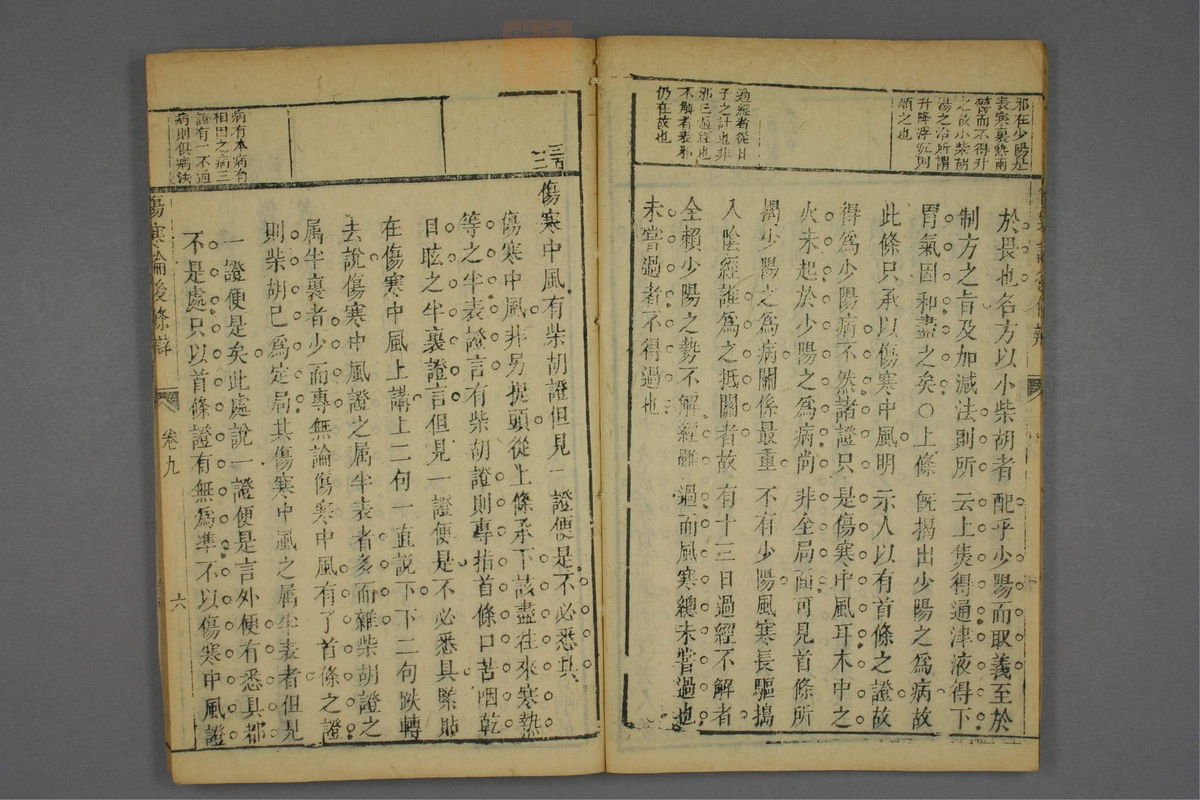 邪在少陽是
表寒裏熱兩
鬱而不得升
之故小柴胡
湯之治所謂
升降浮沉則
順之也
過經者從日
子之計也非
邪已過經也
不解者表邪
仍在故也
於長也名方以小柴胡者配乎少陽而取義至於
制方之旨及加減法則所云上焦得通津液得下
胃氣因和盡之矣○上條既揭出少陽之爲病故
此條只承以傷寒中風明示人以有首條之證故
得爲少陽病不然諸證只是傷寒中風耳木中之
火未起於少陽之爲病尚非全局面可見首條所
揭少陽之爲病關係最重不有少陽風寒長驅搗
入陰經誰爲之抵關者故有十三日過經不解者
全賴少陽之勢不解經雖過而風寒總未嘗過也
未嘗過者不得過也
三百
二
病有本病有
相因之病三
證有一不通
病則俱病法
傷寒中風有柴胡證但見一證便是不必悉具
傷寒中風非另提頭從上條承下該盡往來寒熱
等之半表證言有柴胡證則專指首條口苦咽乾
目眩之半裏證言但見一證便是不必悉具緊貼
在傷寒中風上講上二句一直說下下二句跌轉
去說傷寒中風證之屬半表者多而雜柴胡證之
屬半裏者少而專無論傷寒中風有了首條之證
則柴胡已爲定局其傷寒中風之屬半表者但見
一證便是矣此處說一證便是言外便有悉具都
不是處只以首條證有無爲準不以傷寒中風證
傷寒論後條辯
卷九
六